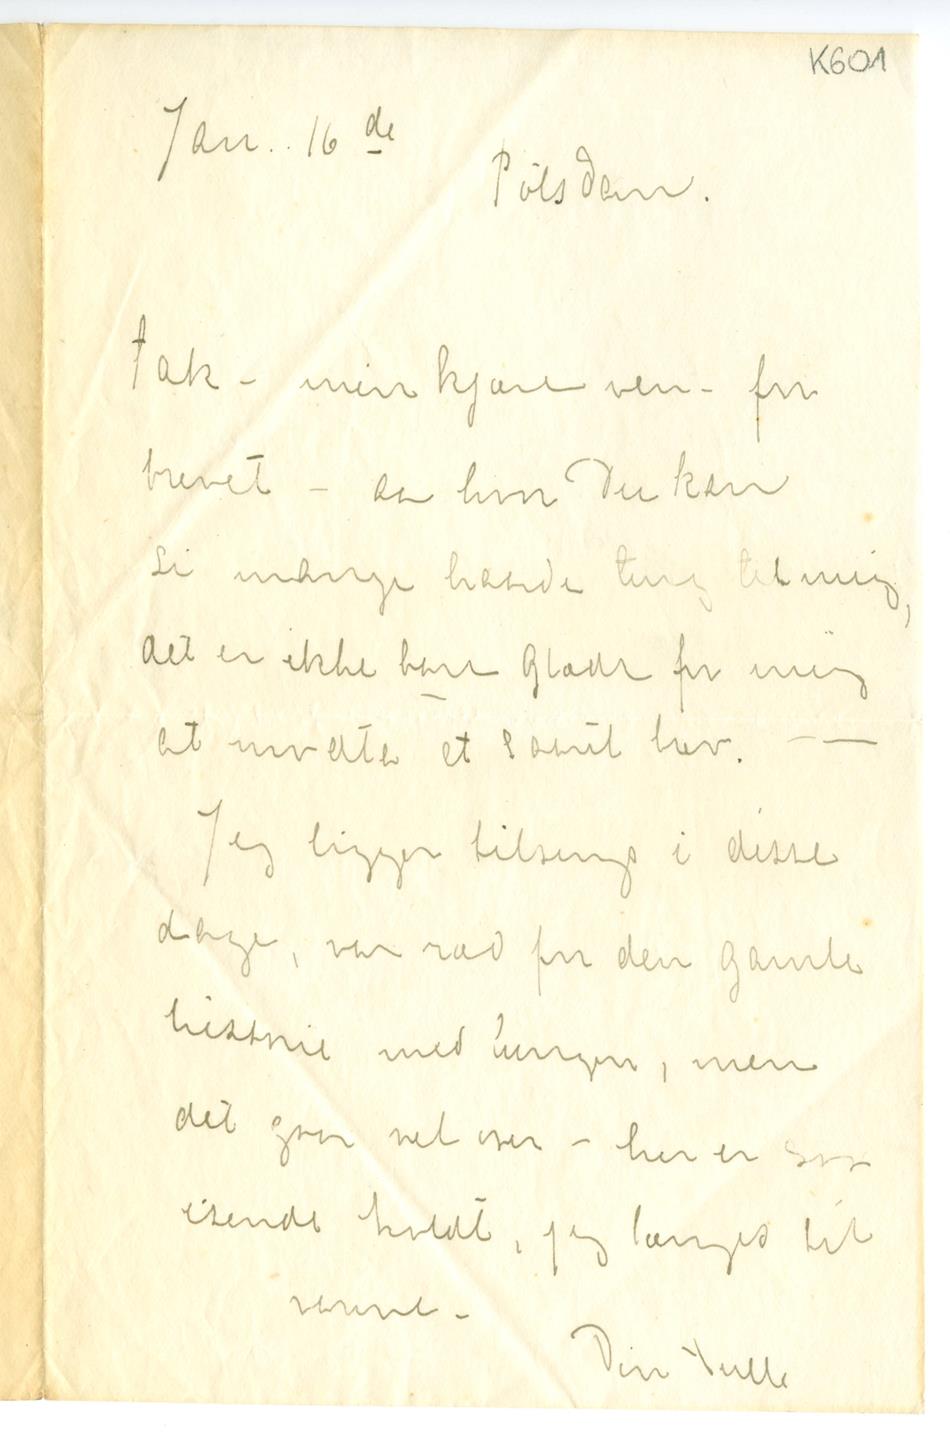 K601
Jan.. 16 de
Potsdam.
Tak - min kjære ven - for
brevet - aa hvor Du kan
si mange haarde ting til mig,
det er ikke bare glæde for mig
at motta et saant brev. - —
Jeg ligger tilsengs i disse
dage, var ræd for den gamle
historie med lungen, men
det gaar vel over - her er saa
isende koldt, jeg længes til
varme -
Din Tulle